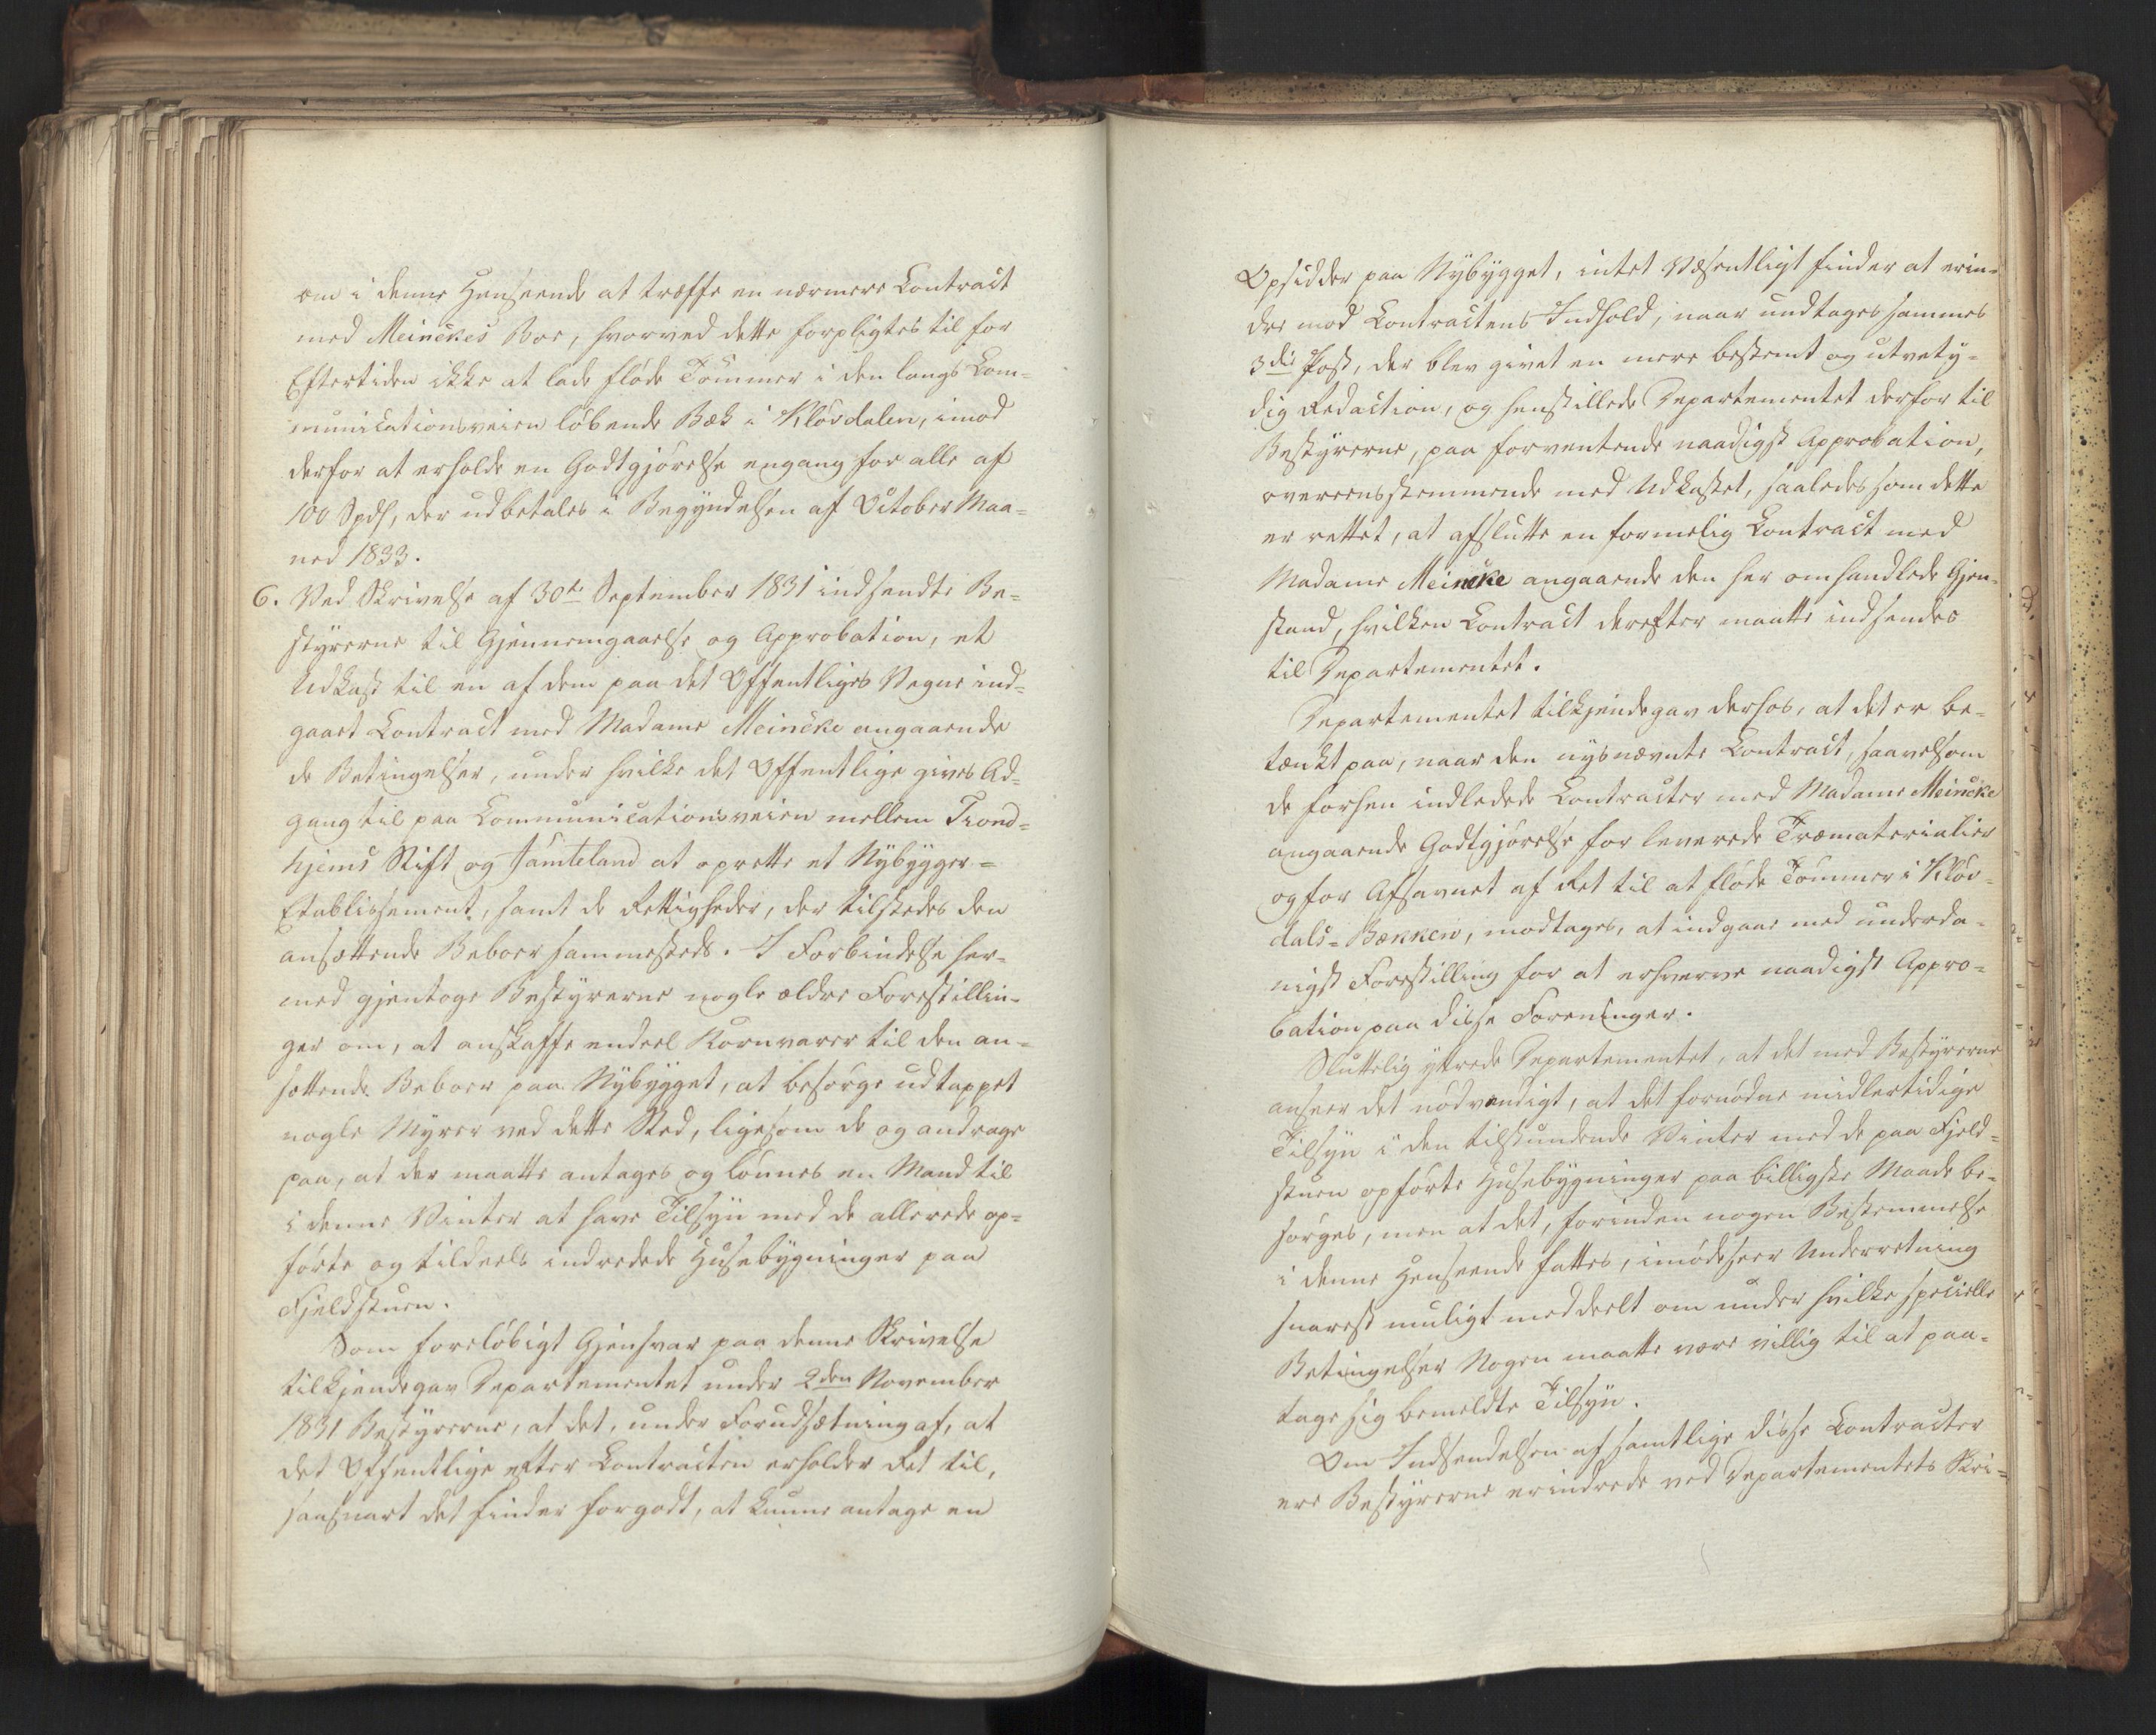 om i denne Henseende at træffe en nærmere Contract
med Meinckes Boe, hvorved dette forpligtes til for
Eftertiden ikke at lade fløde Tømmer i den langs Com-
munikationsveien løbende Bæk i Kløvdalen, imod
derfor at erholde en Godtgjørelse engang for alle af
100 Spd, der udbetales i Begyndelsen af October Maa-
ned 1833.
6. Ved Skrivelse af 30te September 1831 indsendte Be-
styrerne til Gjennemgaaelse og Approbation, et
Udkast til en af dem paa det Offentliges Vegne ind-
gaaet Contract med Madame Meincke angaaende
de Betingelser, under hvilke det Offentlige gives Ad-
gang til paa Communicationsveien mellem Trond-
hjems Stift og Jämteland at oprette et Nybygger-
Etablissement, samt de Rettigheder, der tilstedes den
ansættende Beboer sammesteds. I Forbindelse her-
med gjentoge Bestyrerne nogle ældre Forestillin-
ger om, at anskaffe endeel Kornvarer til den an-
sættende Beboer paa Nybygget, at besørge udtappet
nogle Myrer ved dette Sted, ligesom de og androge
paa, at der maatte antages og lønnes en Mand til
i denne Vinter at have Tilsyn med de allerede op-
førte og tildeels indredede Husebygninger paa
Fjeldstuen.
Som foreløbigt Gjensvar paa denne Skrivelse
tilkjendegav Departementet under 2den November
1831 Bestyrerne, at det, under Forudsætning af, at
det Offentlige efter Contracten erholder Ret til,
saasnart det finder forgodt, at kunne antage en
Opsidder paa Nybygget, intet Væsentligt finder at erin-
dre mod Contractens Indhold, naar undtages sammes
3die Post, der blev givet en mere bestemt og utvety-
dig Redaction, og henstillede Departementet derfor til
Bestyrerne, paa forventende naadigst Approbation,
overeensstemmende med Udkastet, saaledes som dette
er rettet, at afslutte en formelig Contract med
Madame Meincke angaaende den her omhandlede Gjen-
stand, hvilken Contract derefter maatte indsendes
til Departementet.
Departementet tilkjendegav derhos, at det er be-
tænkt paa, naar den nysnævnte Contract, saavelsom
de forhen indledede Contracter med Madame Meincke
angaaende Godtgjørelse for leverede Træmaterialier
og for Afsavnet af Ret til at fløde Tømmer i Kløv-
dals-Bækken, modtages, at indgaae med underda-
nigst Forestilling for at erhverve naadigst Appro-
bation paa disse Foreninger.
Sluttelig yttrede Departementet, at det med Bestyrerne
anseer det nødvendigt, at det fornødne midlertidige
Tilsyn i den tilstundende Vinter med de paa Fjeld-
stuen opførte Husebygninger paa billigste Maade be-
sørges, men at det, forinden nogen Bestemmelse
i denne Henseende fattes, imødeseer Underretning
snarest muligt meddeelt om under hvilke specielle
Betingelser Nogen maatte være villig til at paa-
tage sig bemeldte Tilsyn.
Om Indsendelsen af samtlige disse Contracter
ere Bestyrerne erindrede ved Departementets Skri-